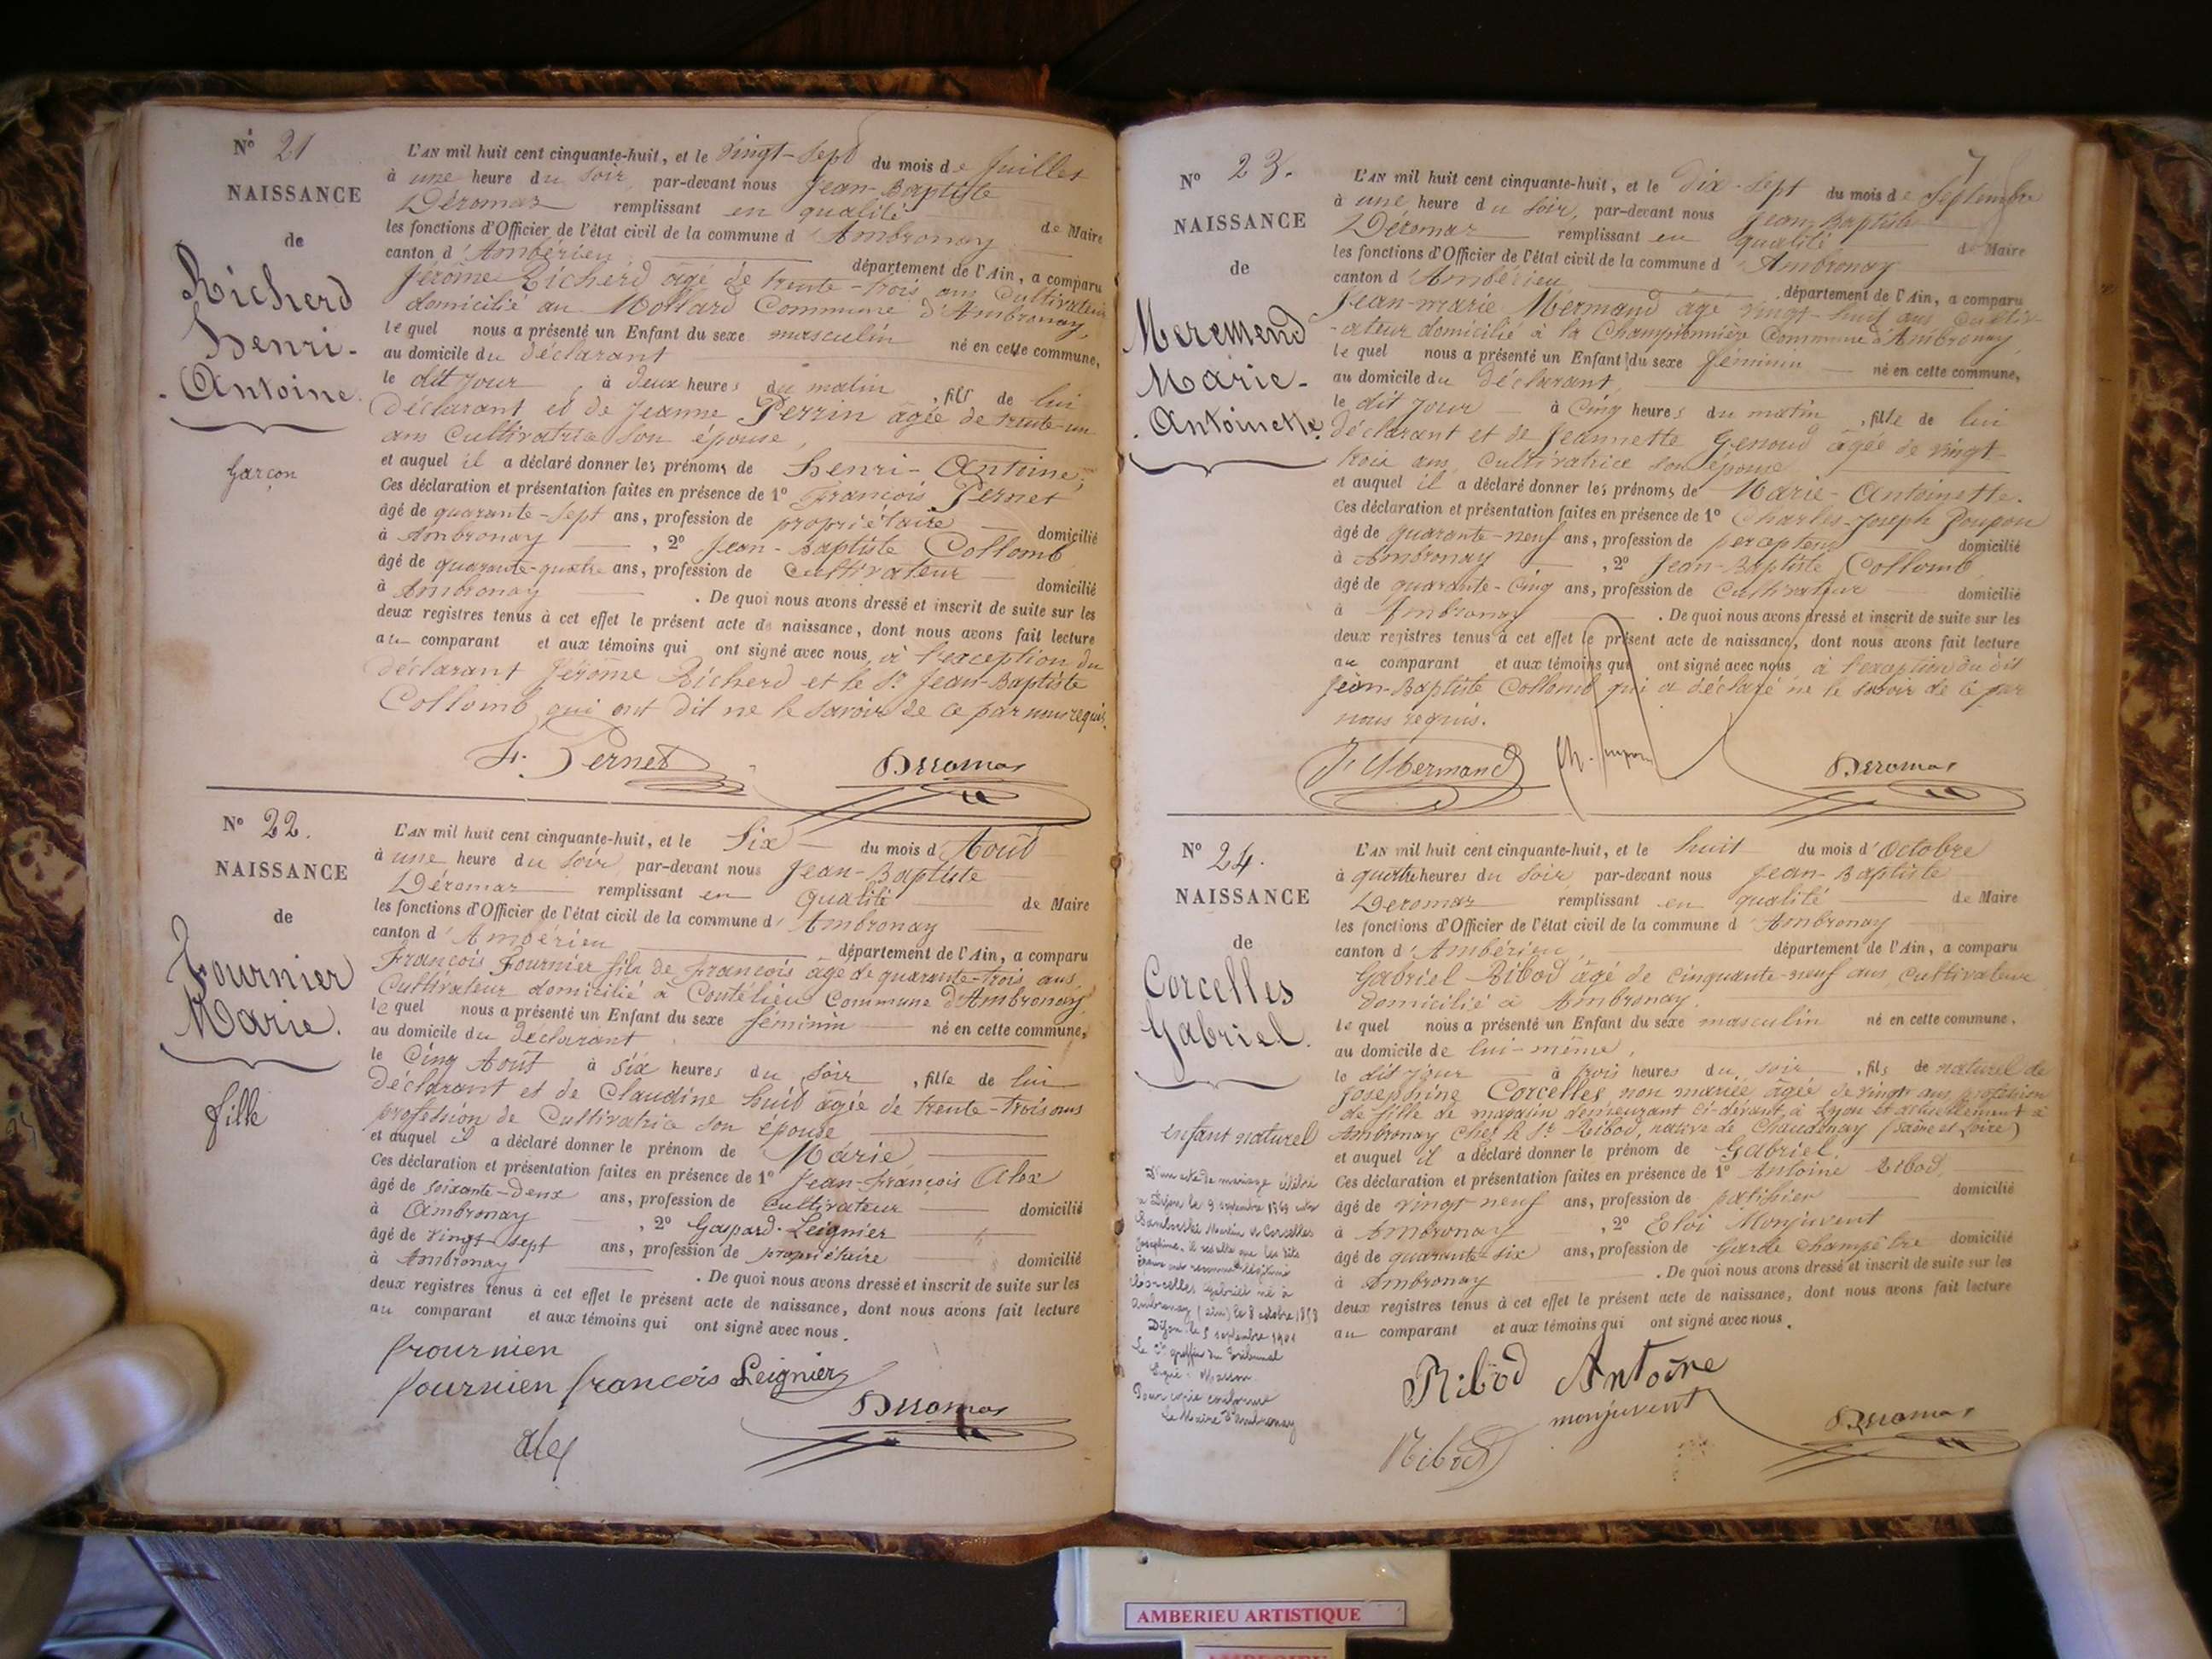 N° 21
NAISSANCE
de
Richerd
Henri-
Antoine
Garçon
L'AN mil huit cent cinquante-huit, et le vingt-sept du mois de Juillet
à une heure du soir, par-devant nous Jean-Baptiste
Déromas remplissant en qualité de Maire
les fonctions d'Officier de l'état civil de la commune d'Ambronay
canton d'Ambérieu département de l'Ain, a comparu
Jérôme Richerd âgé de trente-trois ans cultivateur
domicilié au Mollard Commune d'Ambronay,
lequel nous a présenté un Enfant du sexe masculin né en cette commune,
au domicile du déclarant
le dit jour à deux heures du matin, fils de lui
déclarant et de Jeanne Perrin âgée de trente-un
ans Cultivatrice son épouse,
et auquel il a déclaré donner les prénoms de Henri-Antoine;
Ces déclaration et présentation faites en présence de 1° François Pernet
âgé de quarante-sept ans, profession de propriétaire domicilié
à Ambronay, 2° Jean-Baptiste Collomb
âgé de quarante-quatre ans, profession de Cultivateur domicilié
à Ambronay. De quoi nous avons dressé et inscrit de suite sur les
deux registres tenus à cet effet le présent acte de naissance, dont nous avons fait lecture
au comparant et aux témoins qui ont signé avec nous, à l'exception du
déclarant Jérôme Richerd et le Sr Jean-Baptiste
Collomb qui ont dit ne le savoir de ce par nous requis.
F. Pernet Déromas
N° 22.
NAISSANCE
de
Fournier
Marie.
fille
L'AN mil huit cent cinquante-huit, et le Six du mois d'Août
à une heure du soir, par-devant nous Jean-Baptiste
Déromas remplissant en qualité de Maire
les fonctions d'Officier de l'état civil de la commune d'Ambronay
canton d'Ambérieu département de l'Ain, a comparu
François Fournier fils de François âgé de quarante-trois ans
Cultivateur domicilié à Coutelieu Commune d'Ambronay
lequel nous a présenté un Enfant du sexe féminin né en cette commune,
au domicile du déclarant
le Cinq Août à six heures du soir, fille de lui
déclarant et de Claudine huit âgée de trente-trois ans
profession de Cultivatrice son épouse
et auquel il a déclaré donner le prénom de Marie
Ces déclaration et présentation faites en présence de 1° Jean-François Alex
âgé de soixante-deux ans, profession de Cultivateur domicilié
à Ambronay, 2° Gaspard Leignier
âgé de vingt-sept ans, profession de propriétaire domicilié
à Ambronay. De quoi nous avons dressé et inscrit de suite sur les
deux registres tenus à cet effet le présent acte de naissance, dont nous avons fait lecture
au comparant et aux témoins qui ont signé avec nous.
fournien
fournien francois Leignier
Déromas
alex
7
N° 23.
NAISSANCE
de
Meremend
Marie-
Antoinette
L'AN mil huit cent cinquante-huit, et le dix-sept du mois de Septembre
à une heure du soir, par-devant nous Jean-Baptiste
Déromas remplissant en qualité de Maire
les fonctions d'Officier de l'état civil de la commune d'Ambronay
canton d'Ambérieu département de l'Ain, a comparu
Jean-marie Mermand âgé vingt-huit ans cultiv-
-ateur domicilié à la Championnière Commune d'Ambronay
lequel nous a présenté un Enfant du sexe féminin né en cette commune,
au domicile du déclarant
le dit jour à Cinq heures du matin, fille de lui
déclarant et de Jeannette Genoud âgée de vingt
trois ans, Cultivatrice son épouse
et auquel il a déclaré donner les prénoms de Marie-Antoinette.
Ces déclaration et présentation faites en présence de 1° Charles-Joseph Poupon
âgé de quarante-neuf ans, profession de percepteur domicilié
à Ambronay, 2° Jean-Baptiste Collomb
âgé de quarante-Cinq ans, profession de Cultivateur domicilié
à Ambronay. De quoi nous avons dressé et inscrit de suite sur les
deux registres tenus à cet effet le présent acte de naissance, dont nous avons fait lecture
au comparant et aux témoins qui ont signé avec nous à l'exception du dit
Jean-Baptiste Collomb qui a déclaré ne le savoir de ce par
nous requis.
J Mermand Ch. Poupon Déromas
N° 24.
NAISSANCE
de
Corcelles
Gabriel.
enfant naturel
D'un acte de mariage célébré
à Dijon le 9 septembre 1869 entre
Martin et Corcelles
Josephine, il résulte que les dits
époux ont reconnu et légitimé
Corcelles Gabriel né à
Ambronay (Ain) le 8 octobre 1858
Dijon le 5 septembre 1901
Le greffier du Tribunal
Signé: Masson
Pour copie conforme
Le Maire d'Ambronay
L'AN mil huit cent cinquante-huit, et le huit du mois d'Octobre
à quatre heures du soir par-devant nous Jean-Baptiste
Déromas remplissant en qualité de Maire
les fonctions d'Officier de l'état civil de la commune d'Ambronay
canton d'Ambérieu département de l'Ain, a comparu
Gabriel Ribod âgé de cinquante-neuf ans, cultivateur
domicilié à Ambronay.
lequel nous a présenté un Enfant du sexe masculin né en cette commune,
au domicile de lui-même,
le dit jour à trois heures du soir, fils de naturel de
Josephine Corcelles non mariée âgée de vingt ans profession
de fille de magasin demeurant ci-devant à Lyon et actuellement à
Ambronay chez le Sr Ribod, native de Chaudenay (Saône et Loire)
et auquel il a déclaré donner le prénom de Gabriel.
Ces déclaration et présentation faites en présence de 1° Antoine Ribod,
âgé de vingt-neuf ans, profession de patissier domicilié
à Ambronay, 2° Eloi Monjuvent
âgé de quarante-six ans, profession de Garde champêtre domicilié
à Ambronay. De quoi nous avons dressé et inscrit de suite sur les
deux registres tenus à cet effet le présent acte de naissance, dont nous avons fait lecture
au comparant et aux témoins qui ont signé avec nous.
Ribod Antoine
monjuvent
Ribod Déromas
AMBERIEU ARTISTIQUE
AMBERIEU